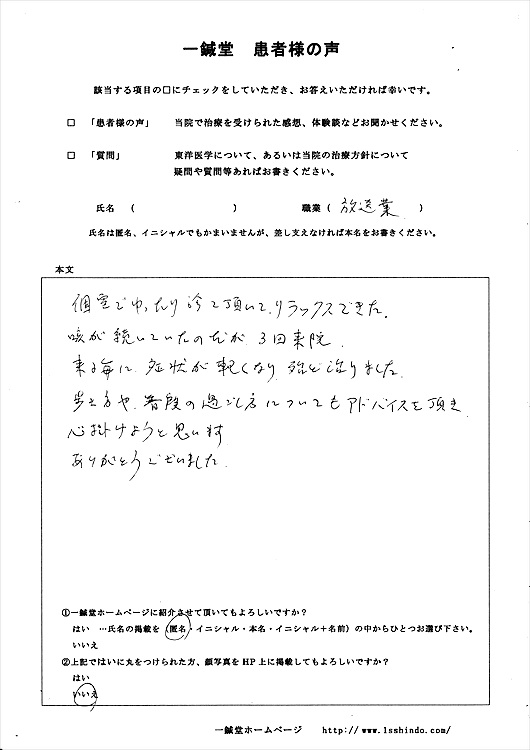 一鍼堂　患者様の声
該当する項目の□にチェックをしていただき、お答えいただければ幸いです。
□　「患者様の声」　当院で治療を受けられた感想、体験談などお聞かせください。
□　「質問」　東洋医学について、あるいは当院の治療方針について
疑問や質問等あればお書きください。
氏名　（　　　　　　　　）　職業（　放送業　）
氏名は匿名、イニシャルでもかまいませんが、差し支えなければ本名をお書きください。
本文
個室でゆったり診て頂いて、リラックスできた。
咳が続いていたのだが、3回来院。
来る毎に、症状が軽くなり、殆ど治りました。
歩き方や、普段の過ごし方についてもアドバイスを頂き
心掛けようと思います
ありがとうございました。
①一鍼堂ホームページに紹介させて頂いてもよろしいですか？
はい　…氏名の掲載を（匿名・イニシャル・本名・イニシャル＋名前）の中からひとつお選び下さい。
いいえ
②上記ではいに丸をつけられた方、顔写真をHP上に掲載してもよろしいですか？
はい
いいえ
一鍼堂ホームページ　http://www.1sshindo.com/